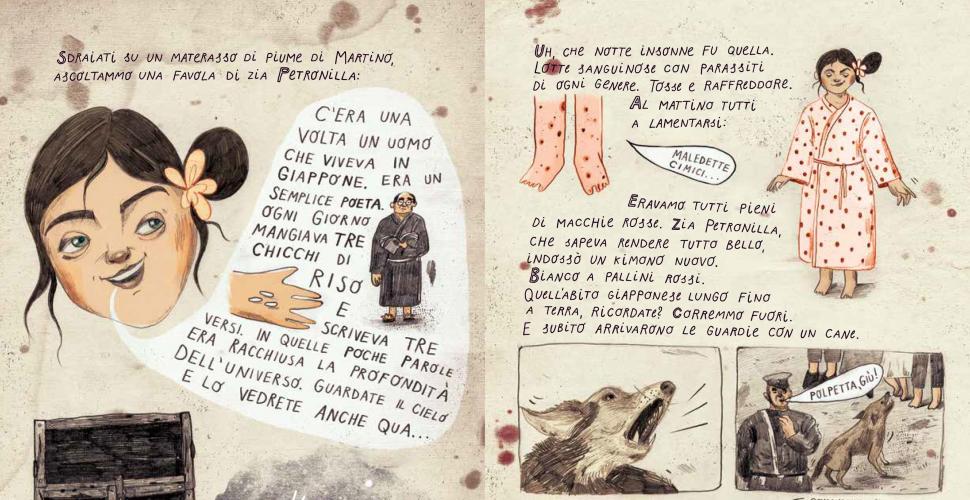 Sdraiati su un materasso di piume di Martino,
ascoltammo una favola di zia Petronilla:
C'ERA UNA
VOLTA UN UOMO
CHE VIVEVA IN
GIAPPONE. ERA UN
SEMPLICE POETA.
OGNI GIORNO
MANGIAVA TRE
CHICCHI DI
RISO
E
SCRIVEVA TRE
VERSI. IN QUELLE POCHE PAROLE
ERA RACCHIUSA LA PROFONDITÀ
DELL'UNIVERSO. GUARDATE IL CIELO
E LO VEDRETE ANCHE QUA...
Uh, che notte insonne fu quella.
Lotte sanguinose con parassiti
di ogni genere. Tosse e raffreddore.
Al mattino tutti
a lamentarsi:
MALEDETTE
CIMICI...
Eravamo tutti pieni
di macchie rosse. Zia Petronilla,
che sapeva rendere tutto bello,
indossò un kimono nuovo.
Bianco a pallini rossi.
Quell'abito giapponese lungo fino
a terra, ricordate? Corremmo fuori.
E subito arrivarono le guardie con un cane.
POLPETTA, GIÙ!